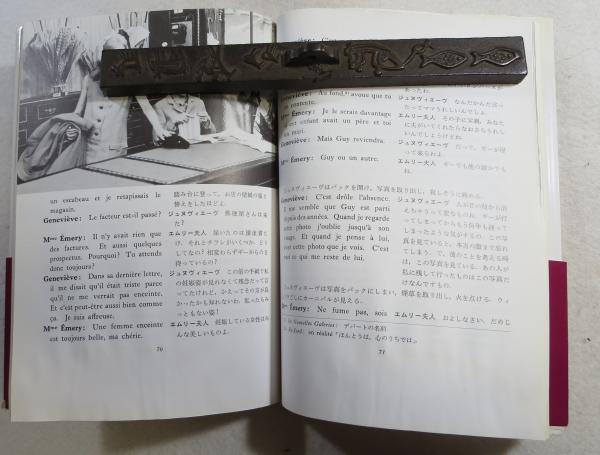 un escabeau et je retapissais le
magasin.
Geneviève: Le facteur est-il passé?
Mme Émery: Il n'y avait rien que
des factures. Et aussi quelques
prospectus. Pourquoi? Tu attends
donc toujours?
Geneviève: Dans sa dernière lettre,
il me disait qu'il était triste parce
qu'il ne me verrait pas enceinte.
Et c'est peut-être aussi bien comme
ça. Je suis affreuse.
Mme Émery: Une femme enceinte
est toujours belle, ma chérie.
踏み台に登って、お店の壁紙の張り
替えをしたけどよ。
ジュヌヴィエーヴ 郵便屋さんは来
た?
エムリー夫人 届いたのは請求書だ
け。それとチラシがいくつか。どう
してなの? 相変わらずギーからのを
待っているの?
ジュヌヴィエーヴ この前の手紙で私
の妊娠姿が見れなくて残念だって言
ってたけれど、かえってその方が良
かったかも知れないわね。私ったらみ
っともない姿!
エムリー夫人 妊娠している女性はみ
んな美しいものよ。
70
Geneviève: Au fond, avoue que tu
es contente.
Mme Émery: Je le serais davantage
si cet enfant avait un père et toi
un mari.
Geneviève: Mais Guy reviendra.
Mme Émery: Guy ou un autre.
あったわ。
ジュヌヴィエーヴ なんだかんだ言っ
たってママうれしいんでしょ。
エムリー夫人 その子に父親、あなた
に夫がいてくれたらなおさらうれし
いんでしょうけどね。
ジュヌヴィエーヴ だって、ギーが帰
って来るわよ。
エムリー夫人 ギーでも他の誰かでも
ね。
ジュヌヴィエーヴはバックを開け、写真を取り出し、寂しそうに眺める。
Geneviève: C'est drôle l'absence.
Il me semble que Guy est parti
depuis des années. Quand je regarde
cette photo j'oublie jusqu'à son
visage. Et quand je pense à lui,
c'est cette photo que je vois. C'est
tout ce qui me reste de lui.
ジュヌヴィエーヴ 人が目の前から消
えちゃうって変なものね。ギーが行
ってしまってから何年も経ってし
まったような気がするの。この写
真を見ていると、本当の顔まで忘れ
てしまう。で、彼のことを考える時
は、この写真を見ている。あの人が
私に残して行ったものはこの写真だ
けなんですもの。
ジュヌヴィエーヴは写真をバックにしまい、煙草を取り出し、火を点ける。ウィ
カーニバルが見える。
Mme Émery: Ne fume pas, sois
エムリー夫人 およしなさい。だめじ
Nouvelles Galeries: デパートの名前.
Au fond: en réalité「ほんとうは、心のうちでは」.
71